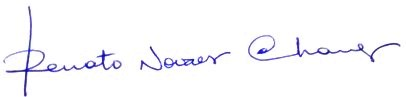 Renato Novaes Chaves